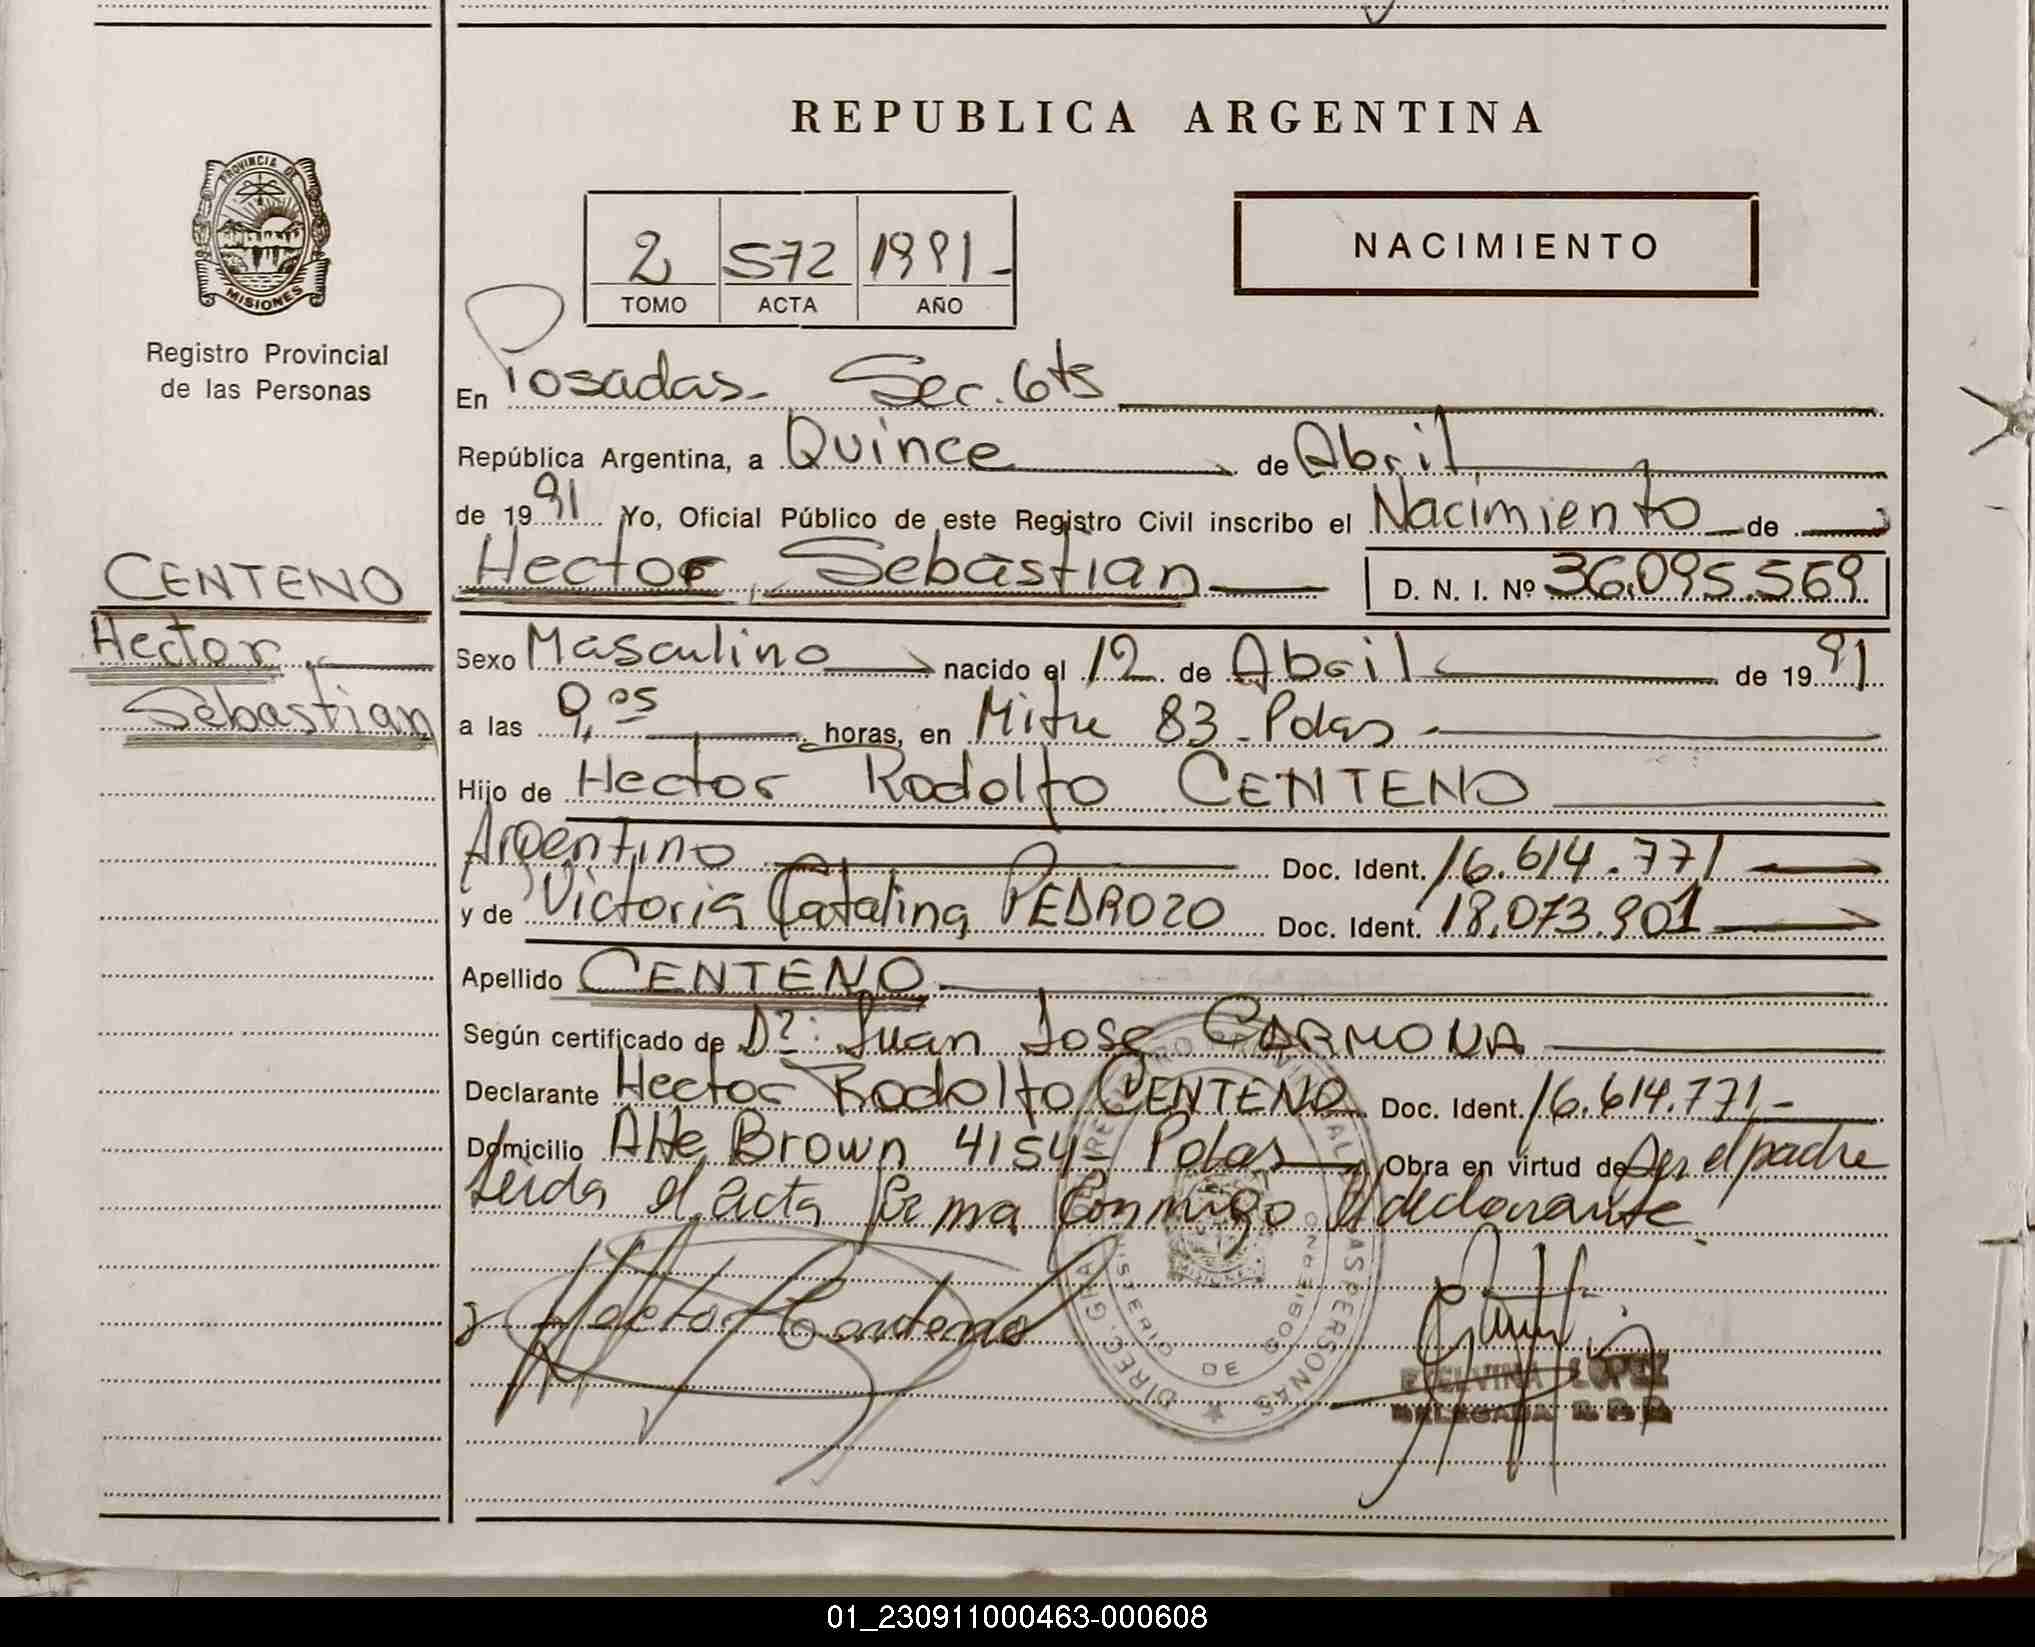 REPUBLICA ARGENTINA
PROVINCIA DE
MISIONES
Registro Provincial
de las Personas
NACIMIENTO
2 572 1991-
TOMO ACTA AÑO
En Posadas- Sec. 6ta
República Argentina, a Quince de Abril
de 1991 Yo, Oficial Público de este Registro Civil inscribo el Nacimiento de
Hector Sebastian D. N. I. Nº 36.095.569
CENTENO
Hector
Sebastian
Sexo Masculino nacido el 12 de Abril de 1991
a las 9,05 horas, en Mitre 83- Pdas
Hijo de Hector Rodolfo CENTENO
Argentino Doc. Ident. 16.614.771
y de Victoria Catalina PEDROZO Doc. Ident. 18.073.901
Apellido CENTENO
Según certificado de Dr: Juan Jose CARMONA
Declarante Hector Rodolfo CENTENO Doc. Ident. 16.614.771-
Domicilio Alte Brown 4154- Pdas Obra en virtud de ser el padre
Leida el acta firma conmigo el declarante
Hector Centeno
LOPEZ
DELEGADA R. P. P.
DIREC. GRAL. REGISTRO PROVINCIAL DE LAS PERSONAS
MINISTERIO DE
01_230911000463-000608